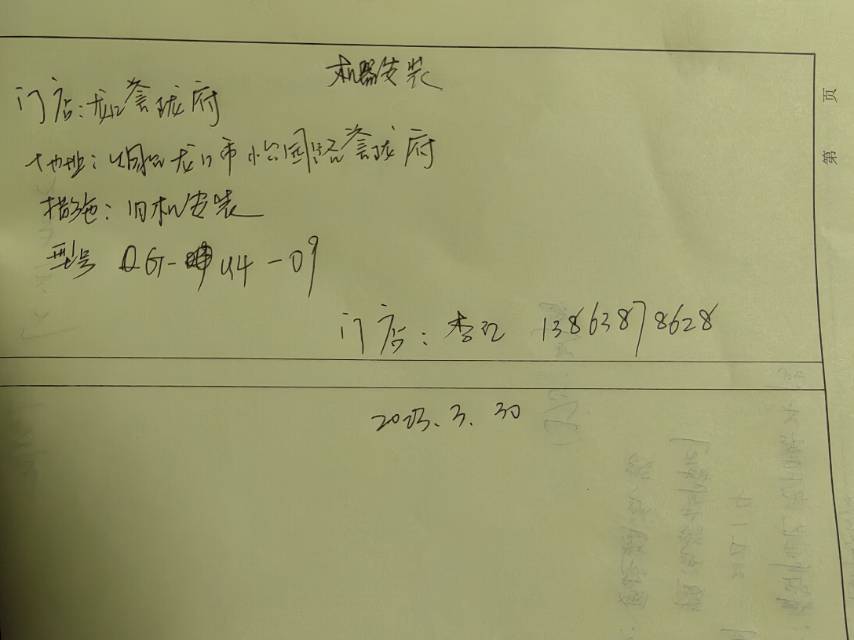 机器安装
门店：龙口誉珑府
地址：烟台龙口市怡园路誉珑府
措施：旧机安装
型号 QG-U4-09
门店：李红 13863878628
2023.3.30
第 页